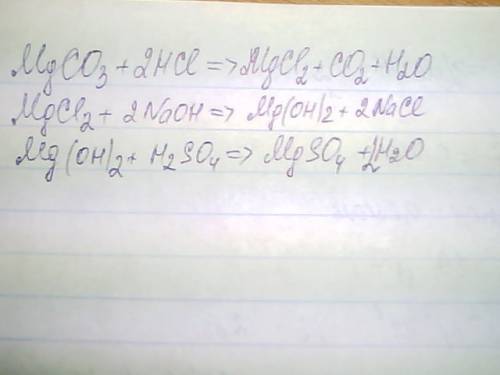 MgCO₃ + 2HCl => MgCl₂ + CO₂ + H₂O
MgCl₂ + 2NaOH => Mg(OH)₂ + 2NaCl
Mg(OH)₂ + H₂SO₄ => MgSO₄ + 2H₂O